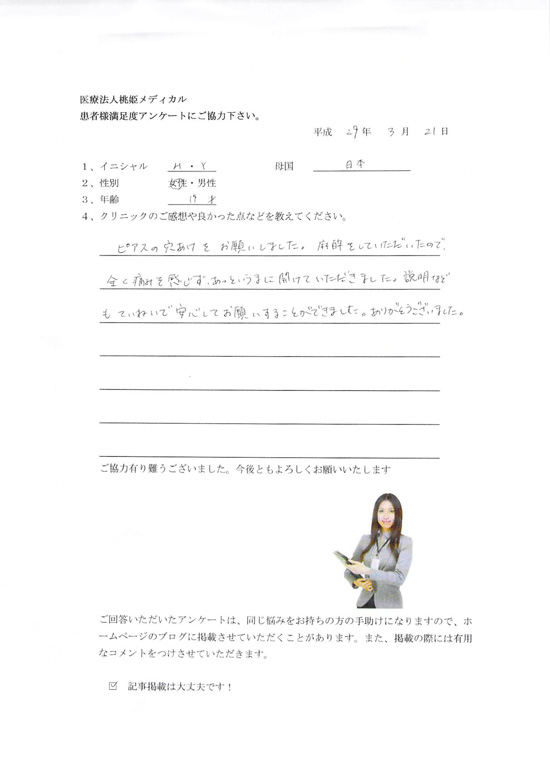 医療法人桃姫メディカル
患者様満足度アンケートにご協力下さい。
平成 29年 3月 21日
1、イニシャル M・Y 母国 日本
2、性別 女性・男性
3、年齢 19才
4、クリニックのご感想や良かった点などを教えてください。
ピアスの穴あけをお願いしました。麻酔をしていただいたので、
全く痛みを感じず、あっというまに開けていただきました。説明など
もていねいで安心してお願いすることができました。ありがとうございました。
ご協力有り難うございました。今後ともよろしくお願いいたします
ご回答いただいたアンケートは、同じ悩みをお持ちの方の手助けになりますので、ホ
ームページのブログに掲載させていただくことがあります。また、掲載の際には有用
なコメントをつけさせていただきます。
☑ 記事掲載は大丈夫です！